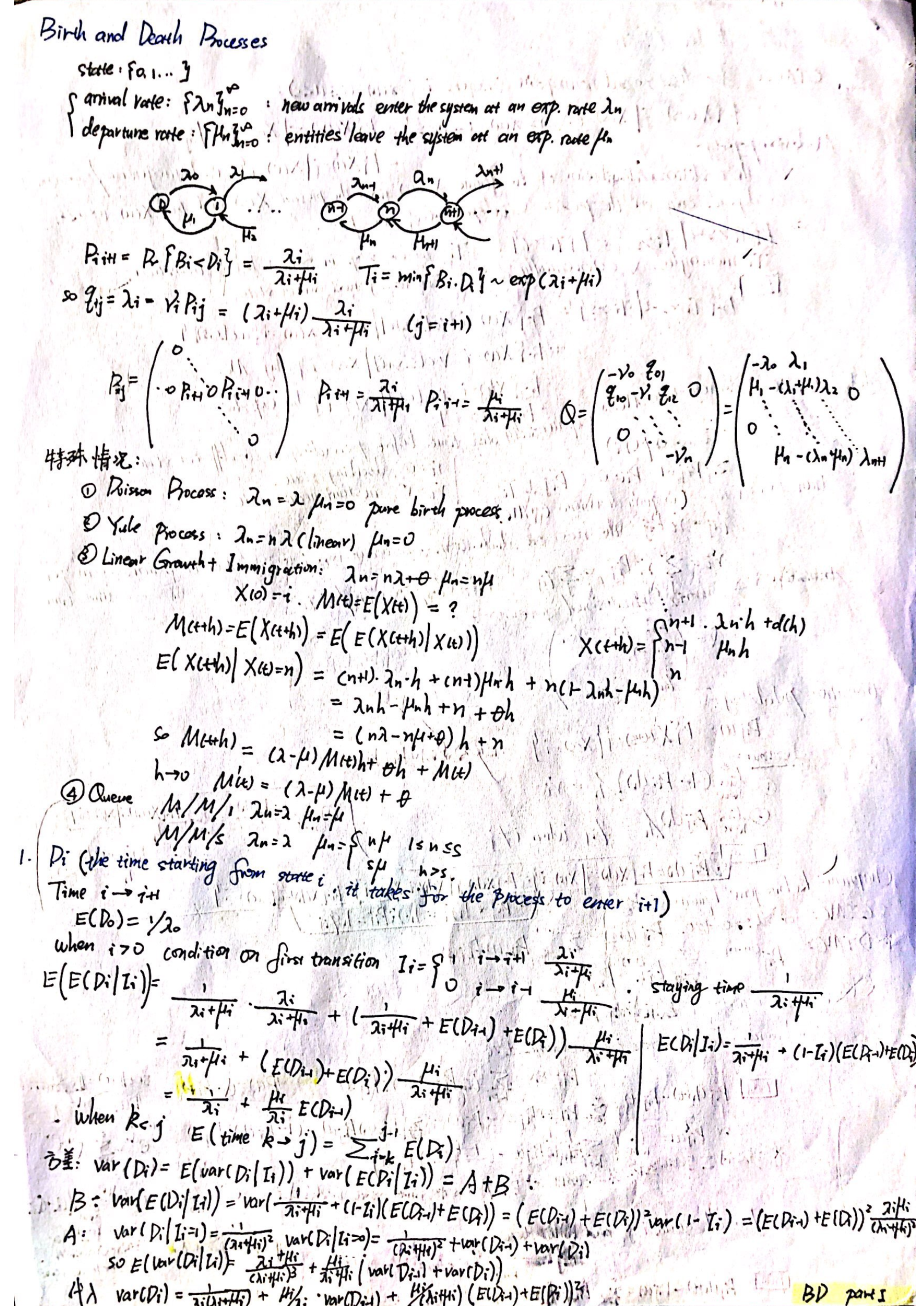 Birth and Death Processes
state: {0,1...}
arrival rate: {λn}∞n=0 : new arrivals enter the system at an exp. rate λn
departure rate: {μn}∞n=0 : entities leave the system at an exp. rate μn
λ0 λ1 λn-1 λn λn+1
0 1 ... n-1 n n+1
μ1 μ2 μn μn+1
Pi,i+1 = Pr{Bi<Di} = λi/(λi+μi) Ti = min{Bi.Di} ~ exp(λi+μi)
so qij = λi = νiPij = (λi+μi) λi/(λi+μi) (j=i+1)
Pij = (0 ... 0 Pi,i-1 0 Pi,i+1 0 ... 0) Pi,i+1 = λi/(λi+μi) Pi,i-1 = μi/(λi+μi)
Q = (-ν0 q01 q10 -ν1 q12 0 0 -νn) = (-λ0 λ1 μ1 -(λ1+μ1) λ2 0 0 μn -(λn+μn) λn+1)
特殊情况:
① Poisson Process: λn=λ μn=0 pure birth process.
② Yule Process: λn=nλ (linear) μn=0
③ Linear Growth+Immigration: λn=nλ+θ μn=nμ
X(0)=i. M(t)=E(X(t)) = ?
M(t+h)=E(X(t+h)) = E(E(X(t+h)|X(t)))
X(t+h)={n+1 . λn·h +d(h)
n-1 μnh
n
E(X(t+h)|X(t)=n) = (n+1)·λn·h + (n-1)μnh + n(1-λnh-μnh)
= λnh-μnh+n+θh
= (nλ-nμ+θ)h+n
so M(t+h) = (λ-μ)M(t)h+θh+M(t)
h→0 M'(t) = (λ-μ)M(t)+θ
④ Queue M/M/1 λn=λ μn=μ
M/M/s λn=λ μn={nμ 1≤n≤s
sμ n>s.
1. Di (the time starting from state i, it takes for the process to enter i+1)
Time i→i+1
E(D0)=1/λ0
when i>0 condition on first transition Ii={1 i→i+1 λi/(λi+μi)
0 i→i-1 μi/(λi+μi) . staying time 1/(λi+μi)
E(E(Di|Ii))= 1/(λi+μi) · λi/(λi+μi) + (1/(λi+μi) + E(Di-1)+E(Di)) μi/(λi+μi)
E(Di|Ii)=1/(λi+μi) + (1-Ii)(E(Di-1)+E(Di))
= 1/(λi+μi) + (E(Di-1)+E(Di)) μi/(λi+μi)
= 1/λi + μi/λi E(Di-1)
when k<j E(time k→j)=∑j-1i=k E(Di)
方差: var(Di)= E(var(Di|Ii)) + var(E(Di|Ii)) = A+B
B: var(E(Di|Ii)) = var(1/(λi+μi)+(1-Ii)(E(Di-1)+E(Di)) = (E(Di-1)+E(Di))²var(1-Ii) = (E(Di-1)+E(Di))² λiμi/(λi+μi)²
A: var(Di|Ii=1)=1/(λi+μi)², var(Di|Ii=0)=1/(λi+μi)²+var(Di-1)+var(Di)
so E(var(Di|Ii))= λi+μi/(λi+μi)³ + μi/(λi+μi) (var(Di-1)+var(Di))
代入 var(Di)=1/λi(λi+μi) + μi/λi · var(Di-1) + μi/(λi+μi) (E(Di-1)+E(Di))²
BD part1